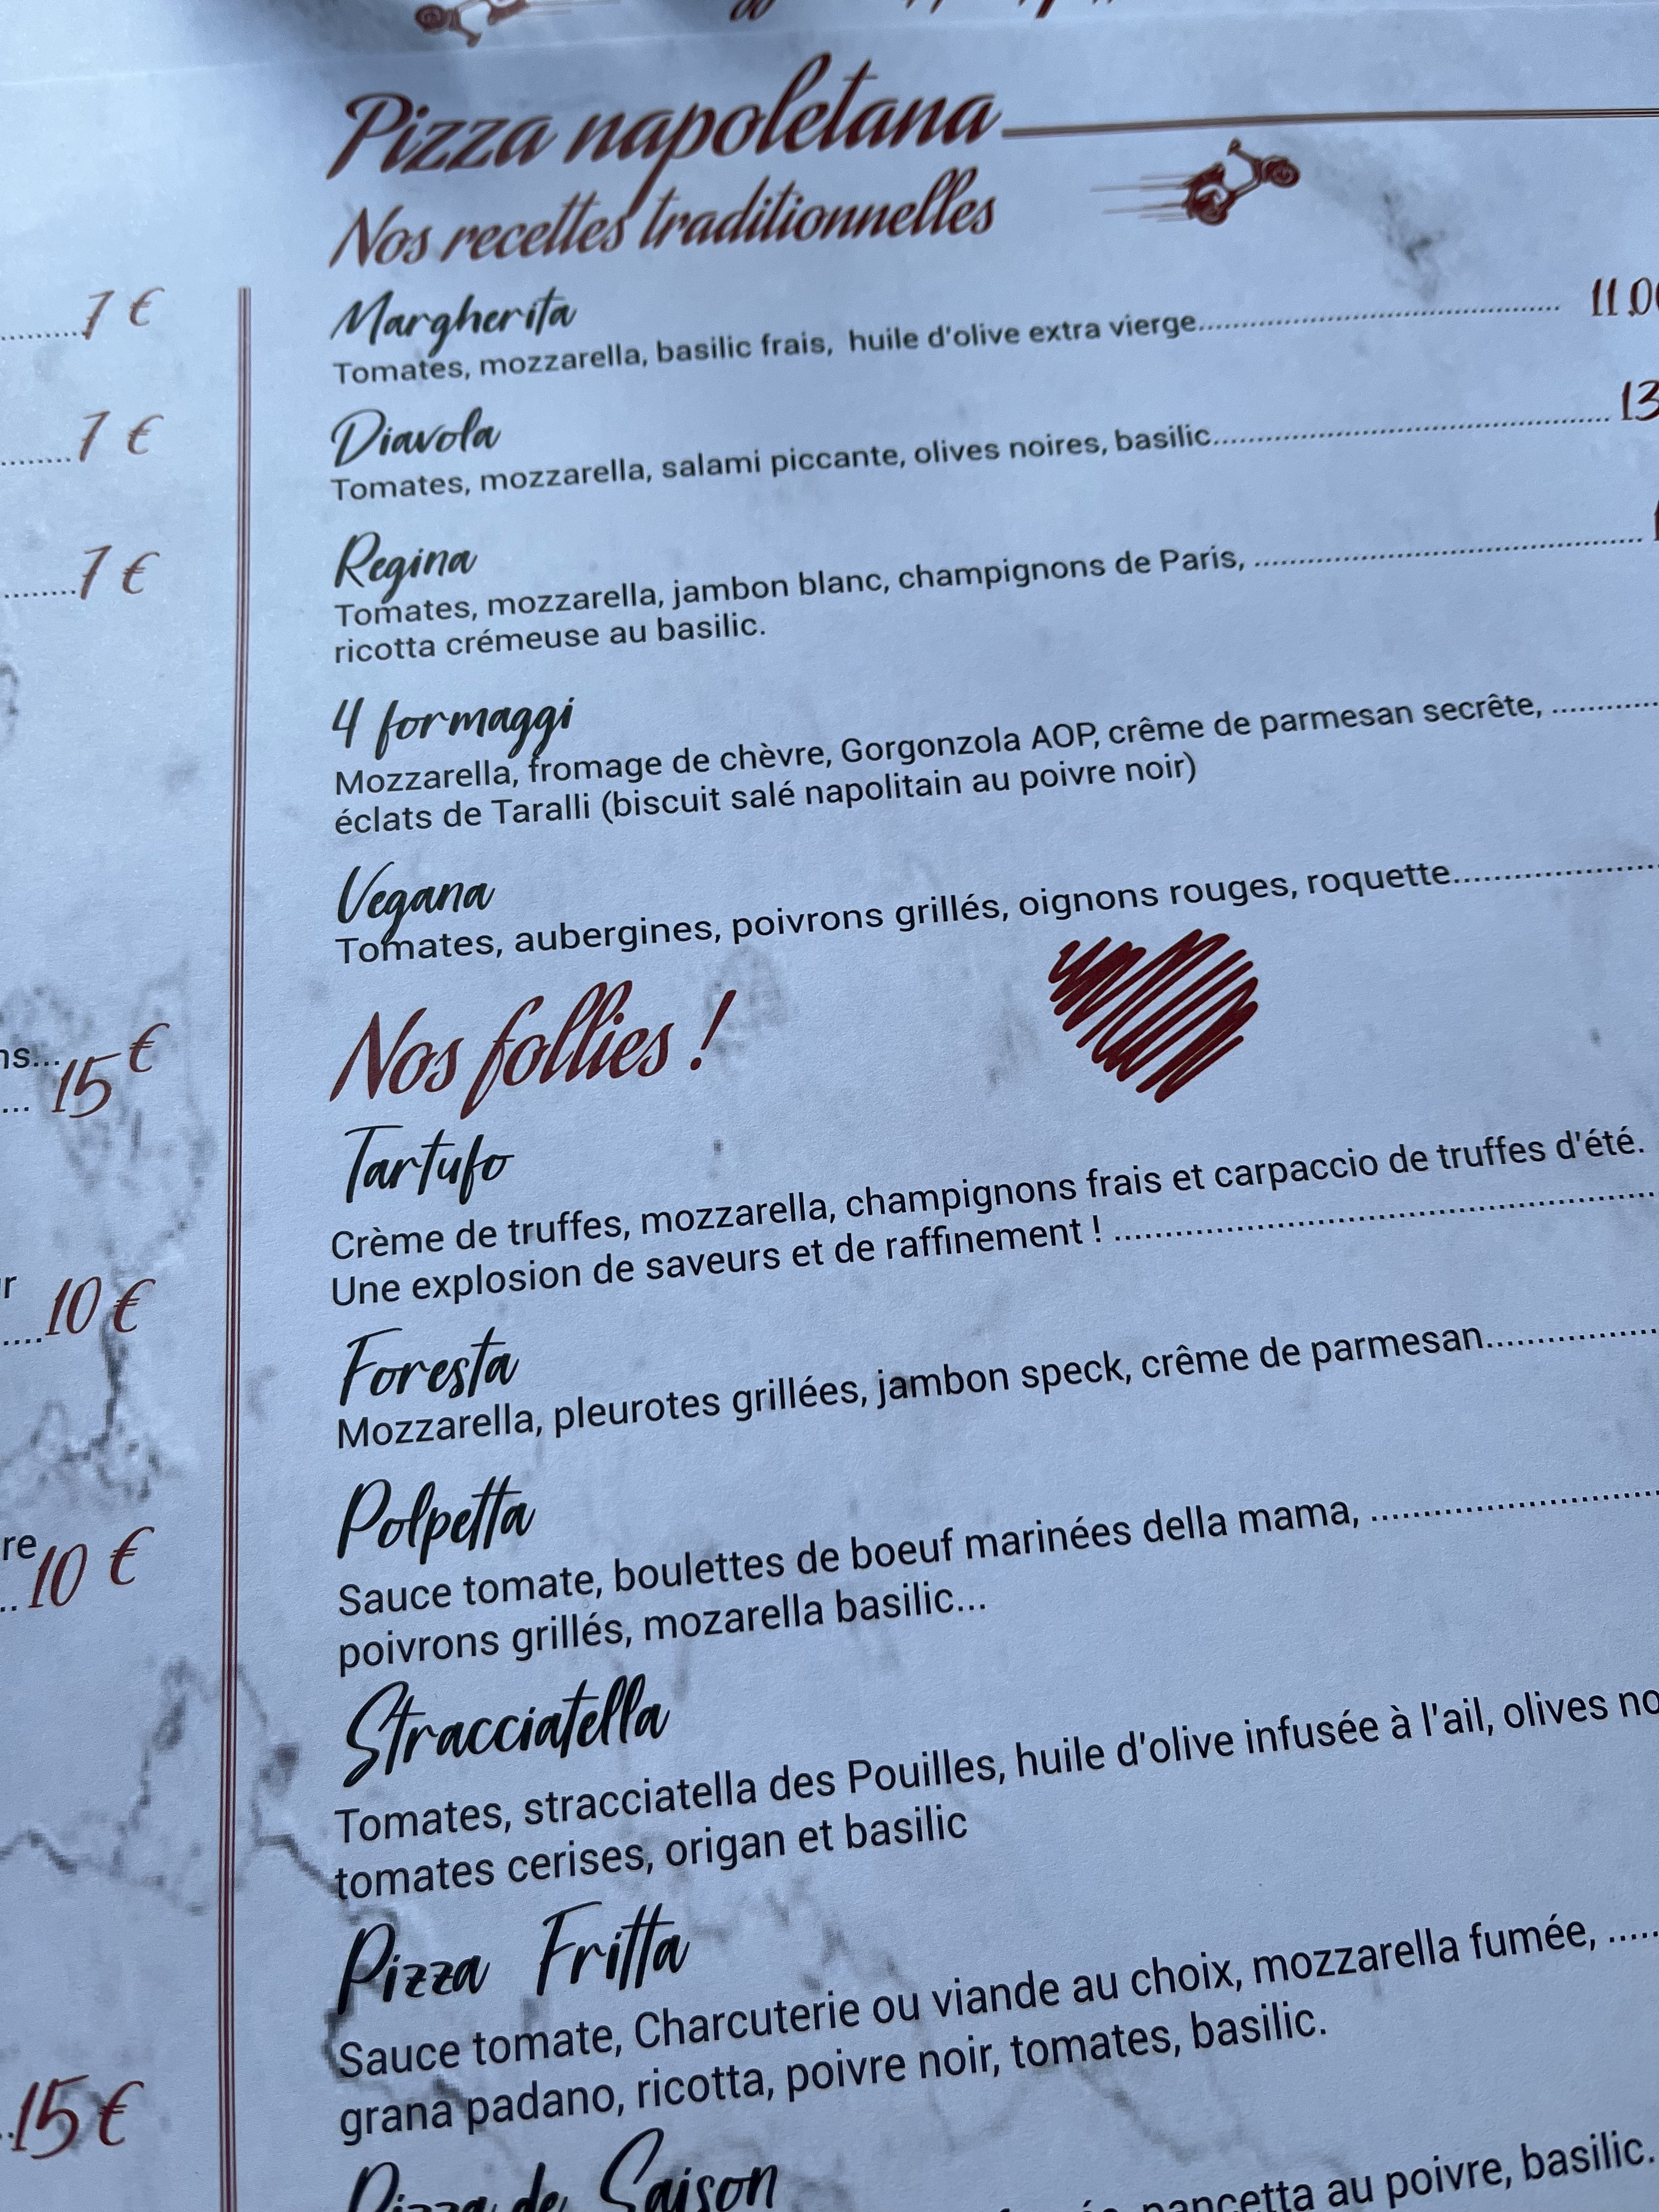 Pizza napoletana
Nos recettes traditionnelles
Margherita
Tomates, mozzarella, basilic frais, huile d'olive extra vierge
Diavola
Tomates, mozzarella, salami piccante, olives noires, basilic
13
Regina
Tomates, mozzarella, jambon blanc, champignons de Paris,
ricotta crémeuse au basilic.
4 formaggi
Mozzarella, fromage de chèvre, Gorgonzola AOP, crême de parmesan secrête,
éclats de Taralli (biscuit salé napolitain au poivre noir)
Vegana
Tomates, aubergines, poivrons grillés, oignons rouges, roquette
Nos follies !
Tartufo
Crème de truffes, mozzarella, champignons frais et carpaccio de truffes d'été.
Une explosion de saveurs et de raffinement !
Foresta
Mozzarella, pleurotes grillées, jambon speck, crême de parmesan
Polpetta
Sauce tomate, boulettes de boeuf marinées della mama,
poivrons grillés, mozarella basilic...
Stracciatella
Tomates, stracciatella des Pouilles, huile d'olive infusée à l'ail, olives
tomates cerises, origan et basilic
Pizza Fritta
Sauce tomate, Charcuterie ou viande au choix, mozzarella fumée,
grana padano, ricotta, poivre noir, tomates, basilic.
Pizza de Saison
pancetta au poivre, basilic.
7 €
7 €
7 €
15 €
10 €
10 €
15 €